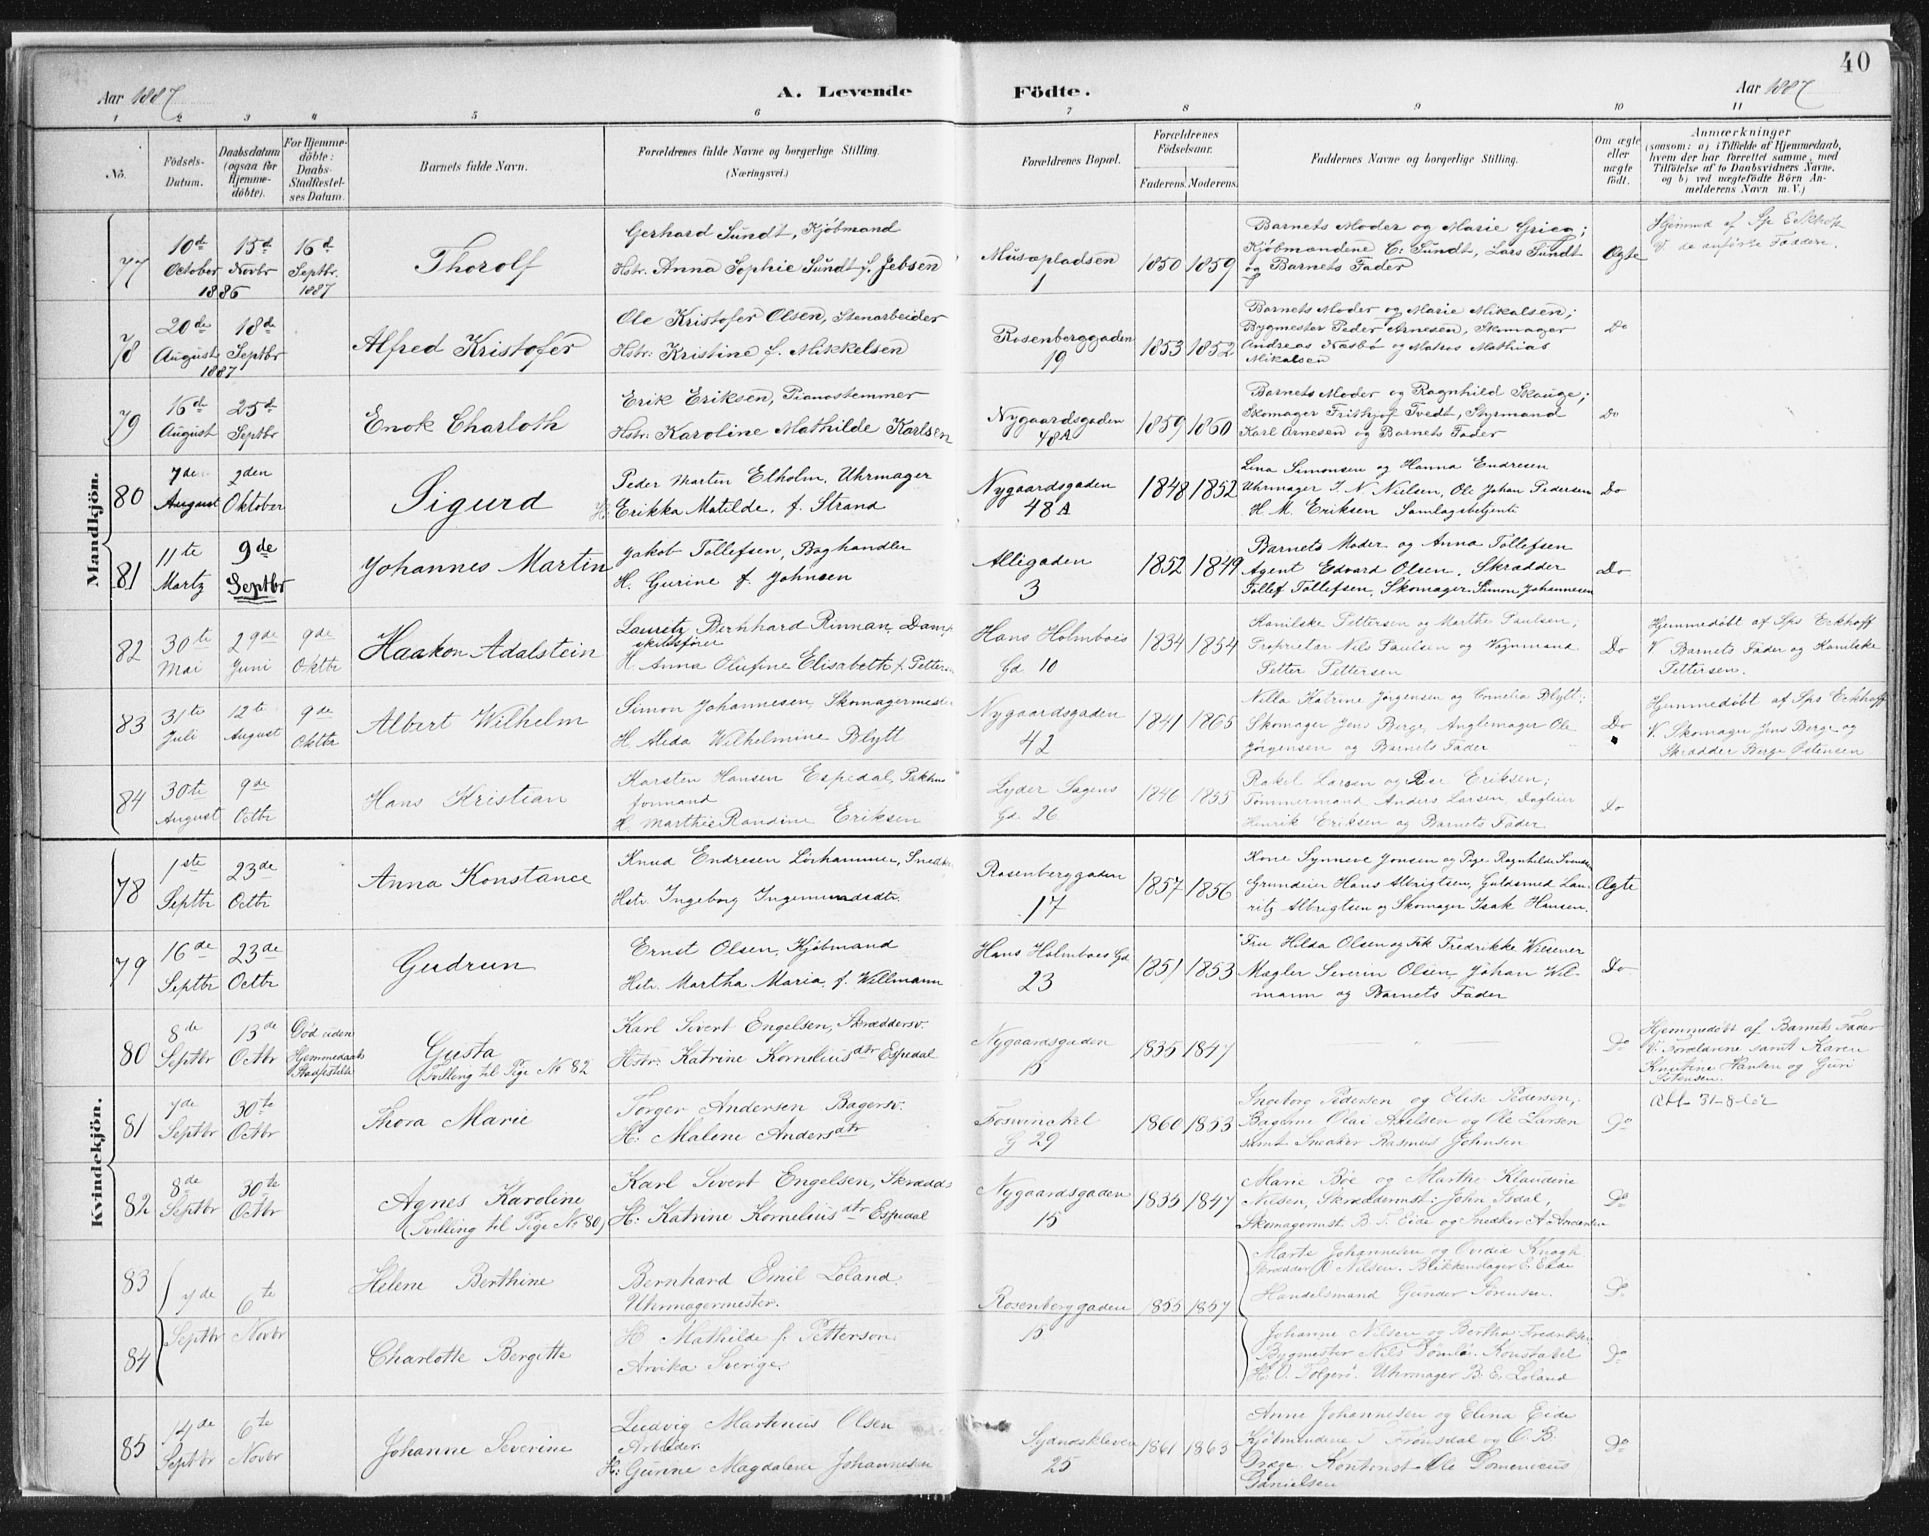 40
Aar 1887
A. Levende
Födte.
Aar 1887
1 2 3 4 5 6 7 8 9 10 11
No.
Födsels-Datum.
Daabsdatum (ogsaa for Hjemme-döbte).
For Hjemme-döbte: Daabs-Stadfæstel-ses Datum.
Barnets fulde Navn.
Forældrenes fulde Navne og borgerlige Stilling.
(Næringsvei.)
Forældrenes Bopæl.
Forældrenes Födselsaar.
Faderens. Moderens.
Faddernes Navne og borgerlige Stilling.
Om ægte eller uægte födt.
Anmærkninger
(saasom: a) i Tilfælde af Hjemmedaab,
hvem der har forrettet samme, med
Tilföielse af to Daabsvidners Navne,
og b) ved uægtefödte Börn An-
melderens Navn m. V.)
Mandkjön.
77 10de October 1886 15d Novbr 16d Septbr. 1887
Thorolf
Gerhard Sundt, Kjöbmand
Hstr. Anna Sophie Sundt f. Jebsen
Musæpladsen 1
1850 1859
Barnets Moder og Marie Grieg;
Kjöbmændene C. Sundt, Lars Sundt
og Barnets Fader
Ægte
Hjemmd af Sp Eckhoff
V de anförte Faddere.
78 20de August 1887 18de Septbr
Alfred Kristofer
Ole Kristofer Olsen, Stenarbeider
Hstr. Kristine f. Mikkelsen
Rosenberggaden 19
1853 1852
Barnets Moder og Marie Mikalsen;
Bygmester Peder Arnesen, Skomager
Andreas Næsbø og Matros Mathias
Mikalsen
Do
79 16de August 25de Septbr
Enok Charloth
Erik Eriksen, Pianostemmer
Hstr. Karoline Mathilde Karlsen
Nygaardsgaden 48A
1859 1850
Barnets Moder og Ragnhild Skauge;
Skomager Frithjof Tvedt, Styrmand
Karl Arnesen og Barnets Fader
Do
80 7de August 2den Oktober
Sigurd
Peder Martin Elholm, Uhrmager
H. Erikka Matilde, f. Strand
Nygaardsgaden 48A
1848 1852
Lina Simonsen og Hanna Endresen
Uhrmager J. N. Nielsen, Ole Johan Pedersen
H. M. Eriksen Samlagsbetjent
Do
81 11te Martz 9de Septbr
Johannes Martin
Jakob Tollefsen, Boghandler
H. Gurine f. Johnsen
Alligaden 3
1852 1849
Barnets Moder og Anna Tollefsen
Agent Edvard Olsen, Skrædder
Tollef Tollefsen, Skomager Simon Johannesen
Do
82 30te Mai 29de Juni 9de Oktbr
Haakon Adalstein
Lauritz Bernhard Rinnan, Damp-
skibsförer
H. Anna Olufine Elisabeth f. Pettersen
Hans Holmboes Gd. 10
1834 1854
Kamilske Pettersen og Marthe Paulsen;
Proprietær Nils Paulsen og Vognmand
Petter Pettersen
Do
Hjemmedöbt af Sps Eckhoff
V. Barnets Fader og Kamilske
Pettersen.
83 31te Juli 12te August 9de Oktbr
Albert Wilhelm
Simon Johannesen, Skomagermester
H. Alida Wilhelmine Blytt
Nygaardsgaden 42
1841 1865
Nilla Katrine Jörgensen og Cornelia Blytt;
Skomager Jens Berge, Anglemager Ole
Jörgensen og Barnets Fader
Do
Hjemmedöbt af Sps Eckhoff
V. Skomager Jens Berge og
Skrædder Berge Ostensen
84 30te August 9de Octbr
Hans Kristian
Karsten Hansen Espedal, Pakhus
formand
H. Marthe Randine Eriksen
Lyder Sagens Gd. 26
1846 1855
Rakel Larsen og Eriksen;
Tömmermand Anders Larsen, Dagleier
Henrik Eriksen og Barnets Fader
Do
Kvindekjön.
78 1ste Septbr 23de Octbr
Anna Konstance
Knud Endresen Lörhammer, Snedker
Hstr. Ingeborg Ingemundsdtr.
Rosenberggaden 17
1857 1856
Kone Synneve Jonsen og Pige Ragnhilde
Grundeier Hans Albrigtsen, Guldsmed Lau-
ritz Albrigtsen og Skomager Isak Hansen.
Ægte
79 16de Septbr 23de Octbr
Gudrun
Ernst Olsen, Kjöbmand
Hstr. Martha Maria, f. Willmann
Hans Holmboes Gd 23
1851 1853
Fru Hilda Olsen og Frk Fredrikke Wiesener
Mægler Severin Olsen, Johan Wil-
mann og Barnets Fader
Do
80 8de Septbr 13de Octbr Död uden Hjemmedaabs Stadfæstelse
Gusta
(Tvilling til Pige No 82
Karl Sivert Engelsen, Skræddersv.
Hstr. Katrine Korneliusdtr Espedal
Nygaardsgaden 15
1835 1847
Do
Hjemmedöbt af Barnets Fader
V. Forældrene samt Karen
Knutine Hansen og Guri
Ostensen.
81 7de Septbr 30te Octbr
Thora Marie
Torger Andersen Bagersv.
H. Malene Andersdtr
Fosvinckel G 29
1860 1853
Ingeborg Pedersen og Elise Pedersen,
Bagerne Olai Axelsen og Ole Larsen
samt Rasmus Johnsen
Do
Att 31-8-62
82 8de Septbr 30te Octbr
Agnes Karoline
(Tvilling til Pige No 80)
Karl Sivert Engelsen, Skrædds
H. Katrine Korneliusdtr Espedal
Nygaardsgaden 15
1835 1847
Marie Böe og Marthe Klaudine
Nilsen, Skræddermst: John Isdal,
Skomagermst. B. T. Eide og Snedker A Andersen
Do
83
84 7de Septbr 6te Novbr
Helene Berthine
Charlotte Bergitte
Bernhard Emil Loland
Uhrmagermester.
H. Mathilde f. Petterson
Arvika Sverige.
Rosenberggaden 15
1855 1857
Marte Johannesen og Ovidia Knagh
Skrædder Nilsen. Blikkenslager E. Eide
Handelsmand Gunder Sörensen.
Do
Johanne Nilsen og Bertha Fredriksen
Bygmester Nils Tömlö. Konstabel
H. O. Tolgerö. Uhrmager B. E. Loland
Do
85 14de Septbr 6te Novbr
Johanne Severine
Ludvig Martinus Olsen
Arbeider.
H. Gurine Magdalene Johannesen
Sydnæskleven 25
1861 1863
Anne Johannesen og Elina Eide
Kjöbmændene Frönsdal og O. B.
Dræge. Kontorist Ole Domenicus
Danielsen
Do